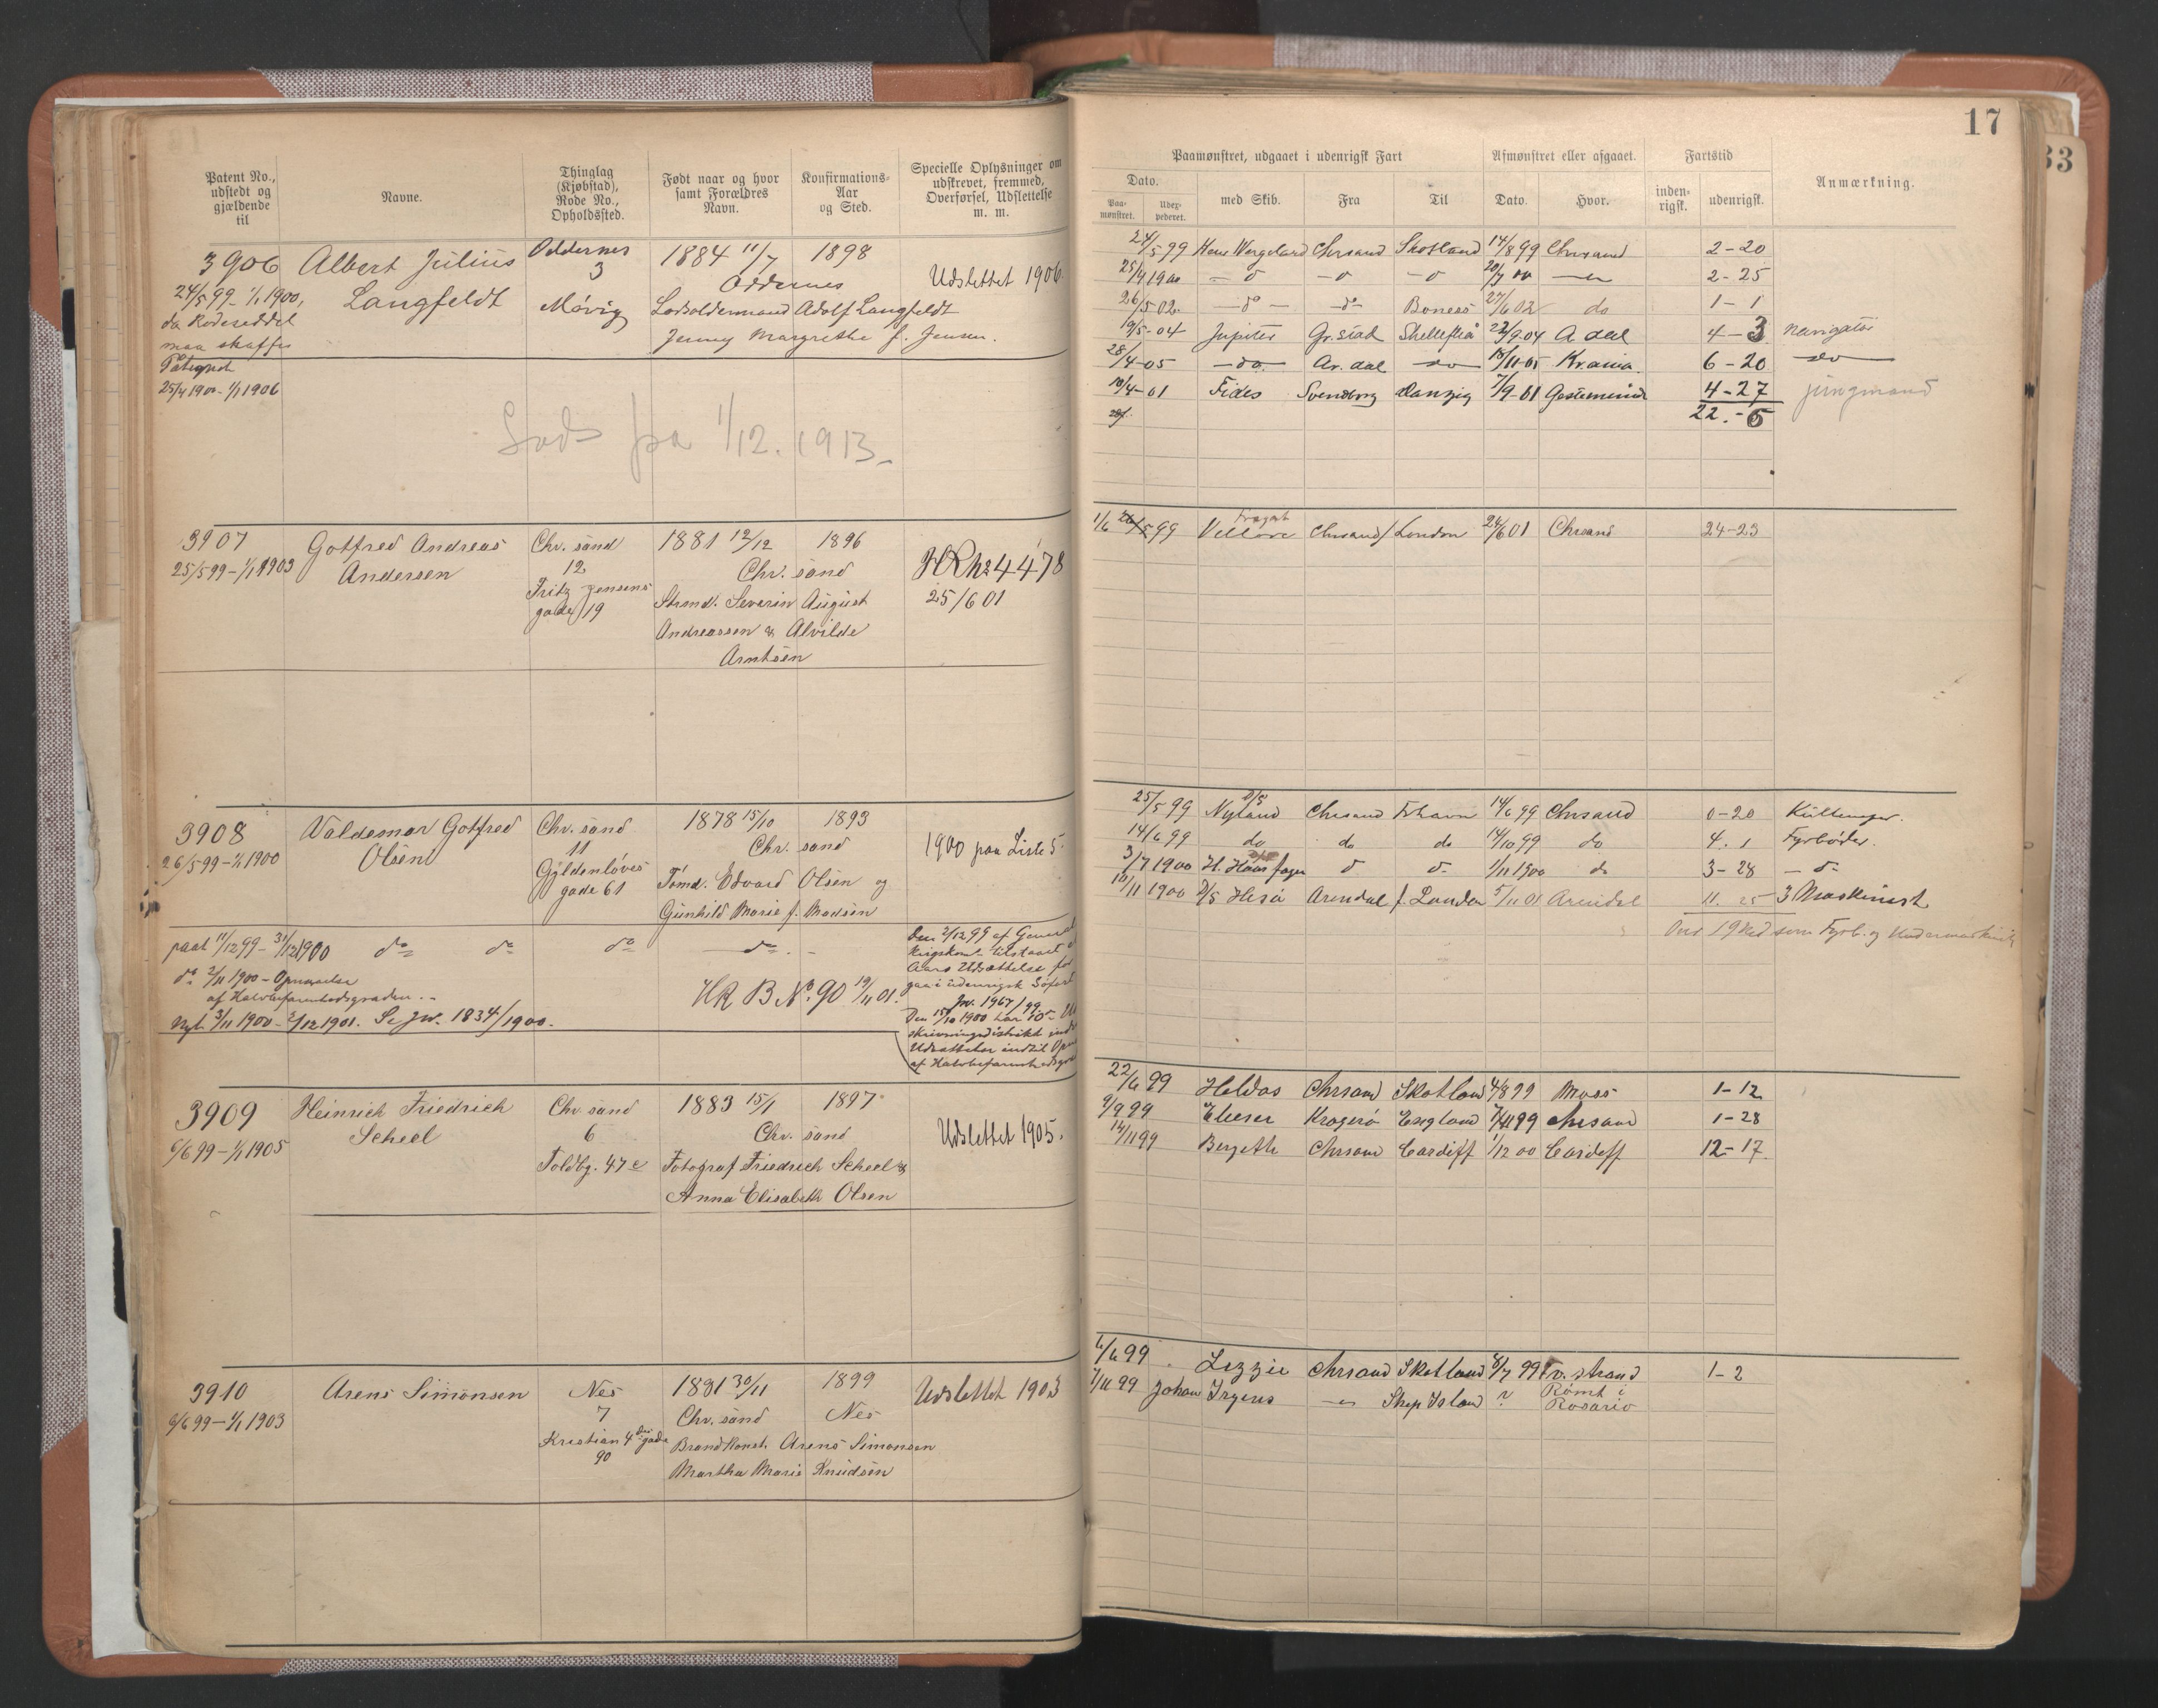 Patent No., udstedt og gjældende til
Navne.
Thinglag (Kjøbstad), Rode No., Opholdssted.
Født naar og hvor samt Forældres Navn.
Konfirmations-Aar og Sted.
Specielle Oplysninger om udskrevet, fremmed, Overførsel, Udslettelse m. m.
3906 Albert Julius Oddernes 1884 11/7 1898
3 Oddernes Udslettet 1906.
24/5 99 - 1/1 1900, Langfeldt Møvig Lodsoldermand Adolf Langfeldt
da Rodeseddel Jenny Margrethe f. Jensen.
maa skaffes
Pategnet
25/4 1900 - 1/1 1906
Lods fra 1/12. 1913.
3907 Gotfred Andreas Chr. sand 1881 12/12 1896
25/5 99 - 1/1 1903 Andersen 12 Chr. sand HR No 4478
Fritz Jensens Strmd. Severin August 25/6 01
gade 19 Andreassen & Alvilde
Arntsen
3908 Valdemar Gotfred Chr. sand 1878 15/10 1893
26/5 99 - 1/1 1900 Olsen 11 Chr. sand 1900 paa Liste 5
Gyldenløves Tømd. Edvard Olsen og
gade 61 Gunhild Marie f. Madsen
paat 11/12 99 - 31/12 1900 do do do do
do 2/11 1900 - Opnaaelse
af Halvbefarenhedsgraden.
Nyt 3/11 1900 - 2/12 1901. Se Jw. 1834/1900.
HR B No. 90 19/11 01.
Den 2/12 99 af General
krigskom. tilstaaet
Aars Udsættelse for
gaa i udenrigsk Søfart
Jw. 1967/99
Den 15/10 1900 har
skrivningsdistrikt
Udsættelse indtil
af Halvbefarenhedsgraden
3909 Heinrich Friedrich Chr. sand 1883 15/1 1897
6/6 99 - 1/1 1905 Scheel 6 Chr. sand Udslettet 1905.
Toldbg. 47 c Fotograf Friedrich Scheel &
Anna Elisabeth Olsen
3910 Arens Simonsen Nes 1881 30/11 1899 Udslettet 1903
6/6 99 - 1/1 1903 7 Chr. sand Nes
Kristian 4 des gade Brandkonst. Arens Simonsen
90 Martha Marie Knudsen
17
33
Paamønstret, udgaaet i udenrigsk Fart
Afmønstret eller afgaaet.
Fartstid
Anmærkning.
Dato.
Paa-mønstret.
Udex-pederet.
med Skib.
Fra
Til
Dato.
Hvor.
inden-rigsk.
udenrigsk.
24/5 99 Hens Wergeland Chrsand Skotland 14/8 99 Chrsand 2-20
25/4 1900 - o - o - o 20/7 00 2-25
26/5 02. - do - - do Boness 27/6 02 do 1-1
19/5-04 Jupiter Gr.stad Skellefteå 22/9-04 A dal 4-3 navigatør
28/4-05 do Ar. dal do 18/11-05 Kr.ania. 6-20 do
10/4-01 Fides Svendborg Danzig 7/9-01 Gestemünde 4-27 jungmand
22.-6
1/6 26/5 99 Fregat Vellore Chrsand London 24/6 01 Chrsand 24-23
25/5 99 D/S Nyland Chrsand Frhavn 14/6 99 Chrsand 0-20 Kullemper.
14/6 99 do do do 14/10 99 do 4. 1 Fyrbøder
3/7 1900 H. Haarfager o o 1/11 1900 do 3-28 - o -
10/11 1900 D/S Hisø Arendal f. London 5/11 01 Arendal 11. 25 3 Maskinist
19 Md som Fyrb. og Undermaskinist
22/6 99 Heldos Chrsand Skotland 4/8 99 Moss 1-12
9/9 99 Elieser Kragerø England 7/11 99 Chrsand 1-28
14/11 99 Bergethe Chrsand Cardiff 1/12 00 Cardiff 12-17
6/6 99 Lizzie Chrsand Skotland 8/7 99 v. strand 1-2
7/11 99 Johan Irgens Ship Island ? Rømt i
Rosario